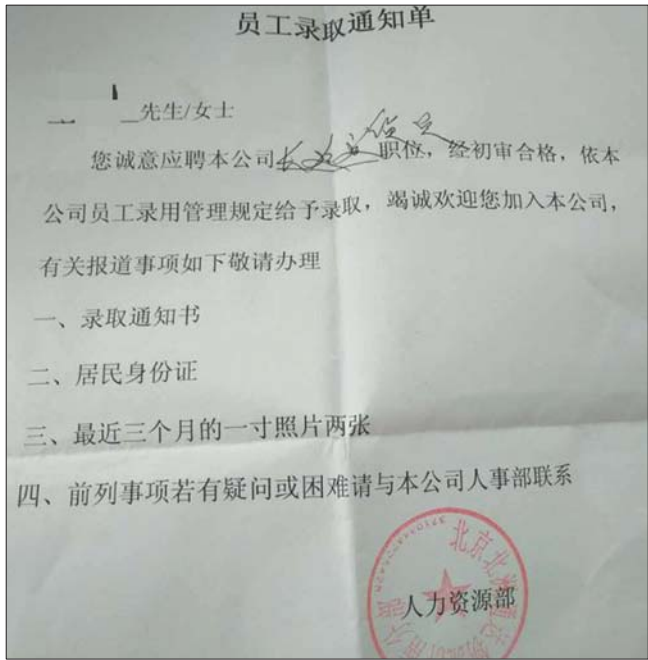 员工录取通知单
先生/女士
您诚意应聘本公司 职位，经初审合格，依本
公司员工录用管理规定给予录取，竭诚欢迎您加入本公司，
有关报道事项如下敬请办理
一、录取通知书
二、居民身份证
三、最近三个月的一寸照片两张
四、前列事项若有疑问或困难请与本公司人事部联系
北京北
人力资源部